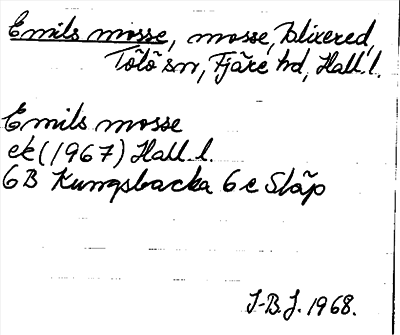 Emils mosse, mosse, Blixered,
Tölö sn, Fjäre hd, Hall. l.
Emils mosse
ek (1967) Hall. l.
6B Kungsbacka 6 c Släp
J-B.J. 1968.